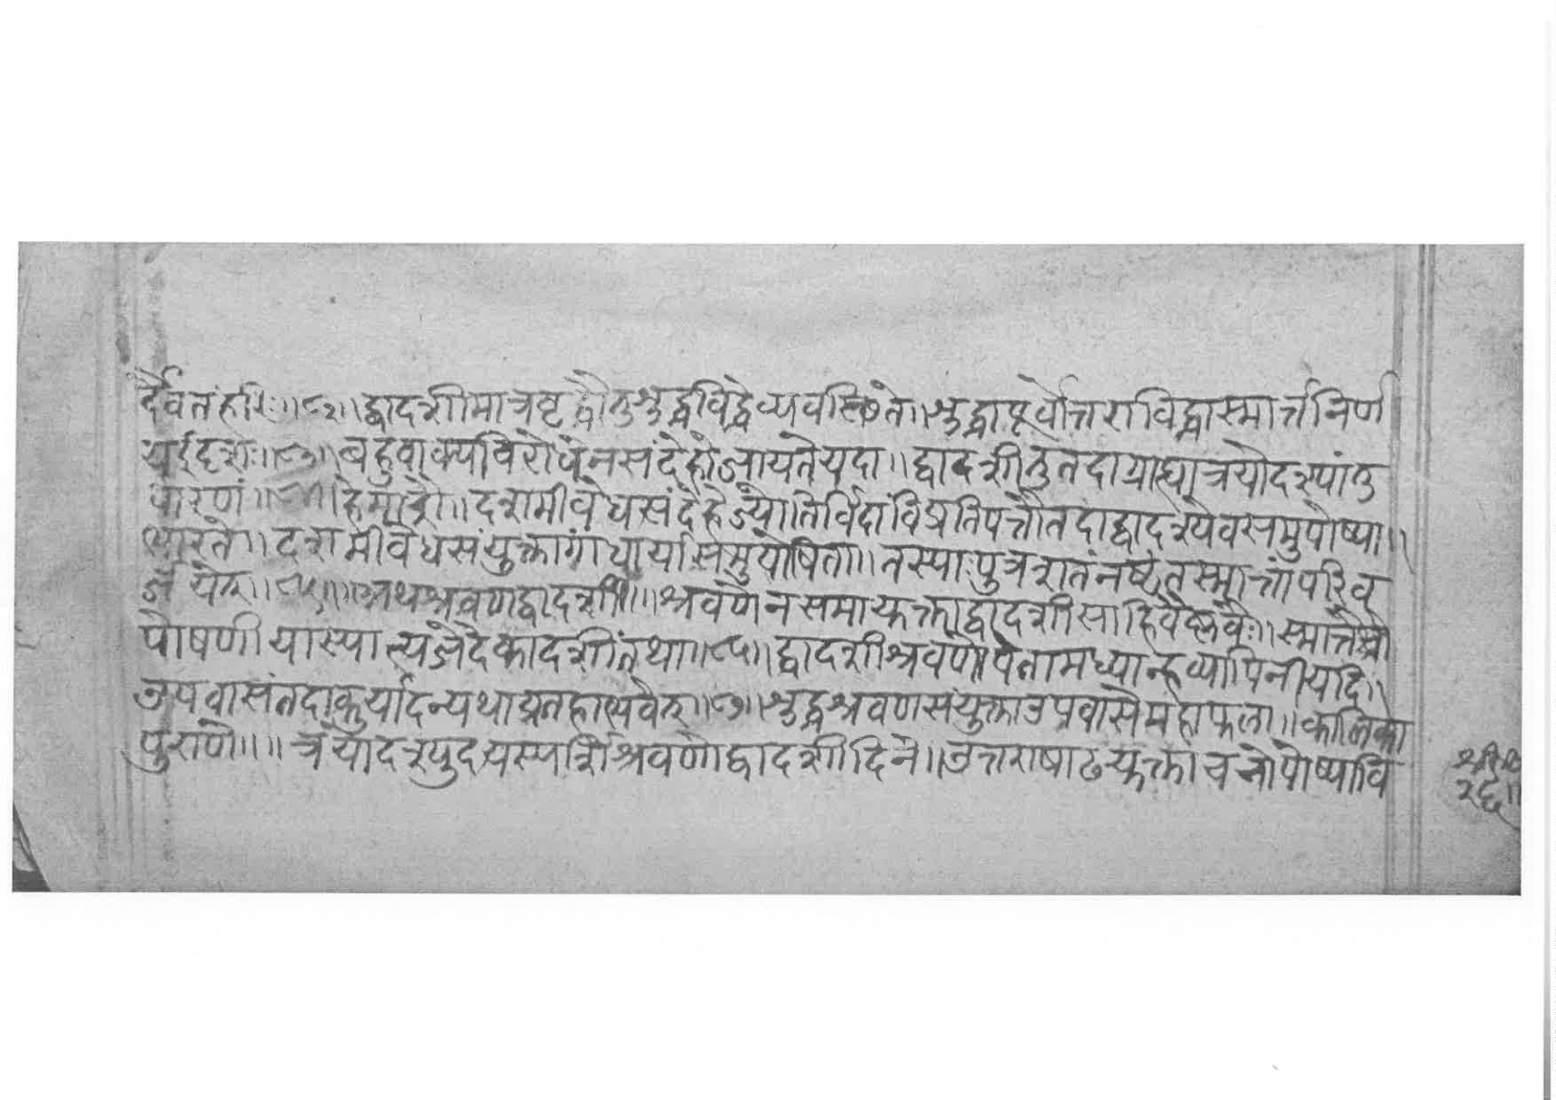 र्दैवतंहरिः॥८२॥द्वादशीमात्रवृद्धौतुशुद्धविद्धेव्यवस्थिते॥शुद्धापूर्वोत्तराविद्धास्मार्त्तनिर्ण
यईदृशः॥८३॥बहुवाक्यविरोधेनसंदेहोजायतेयदा॥द्वादशीतुतदाग्राह्यात्रयोदश्यांतु
पारणं॥ हेमाद्रौ॥दशमीवेधसंदेहेज्योतिर्विदांविप्रतिपत्तौतदाद्वादश्येवसमुपोष्या॥
भारते॥दशमीवेधसंयुक्तागांधार्यासमुपोषिता॥तस्याःपुत्रशतंनष्टंतस्मात्तांपरिव
र्जयेत्॥ ॥अथश्रवणद्वादशी॥॥श्रवणेनसमायुक्ताद्वादशीसाहिवैष्णवैः॥स्मार्त्तैश्चो
पोषणीयास्यात्त्यजेदेकादशींतथा॥८५॥द्वादशीश्रवणोपेतामध्यान्हव्यापिनीयदि॥
उपवासंतदाकुर्यादन्यथाव्रतहाभवेत्॥ ॥शुद्धश्रवणसंयुक्ताउपवासेमहाफला॥कालिका
पुराणे॥॥त्रयोदश्युदयस्पर्शिश्रवणोद्वादशीदिने॥उत्तराषाढयुक्ताचनोपोष्यावि
२६॥